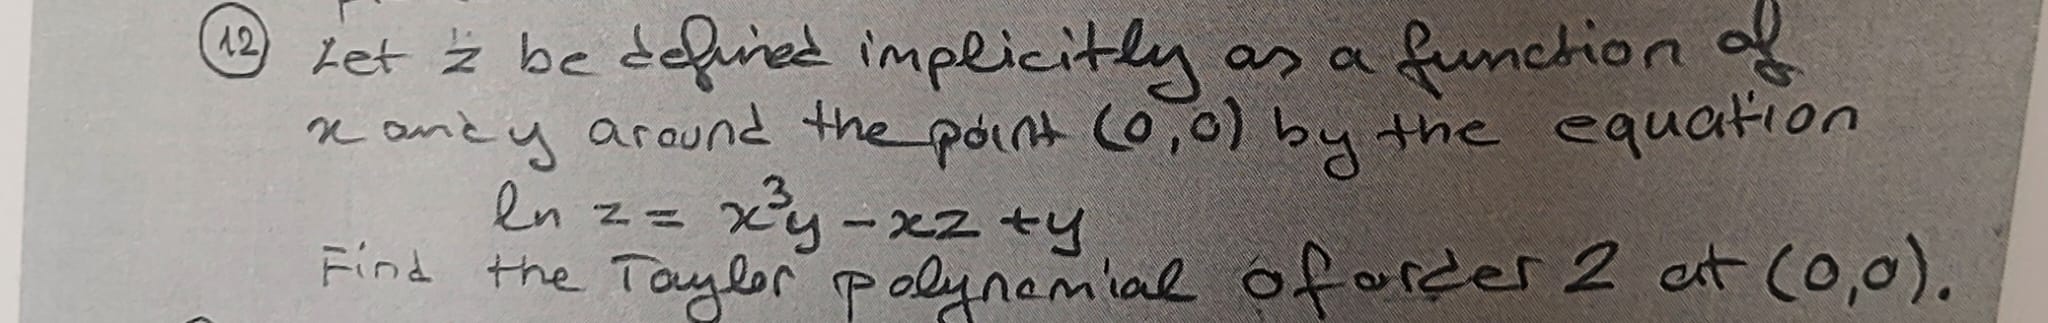 12 Let z be defined implicitly as a function of
x and y around the point (0,0) by the equation
ln z = x³y - xz + y
Find the Taylor polynomial of order 2 at (0,0).